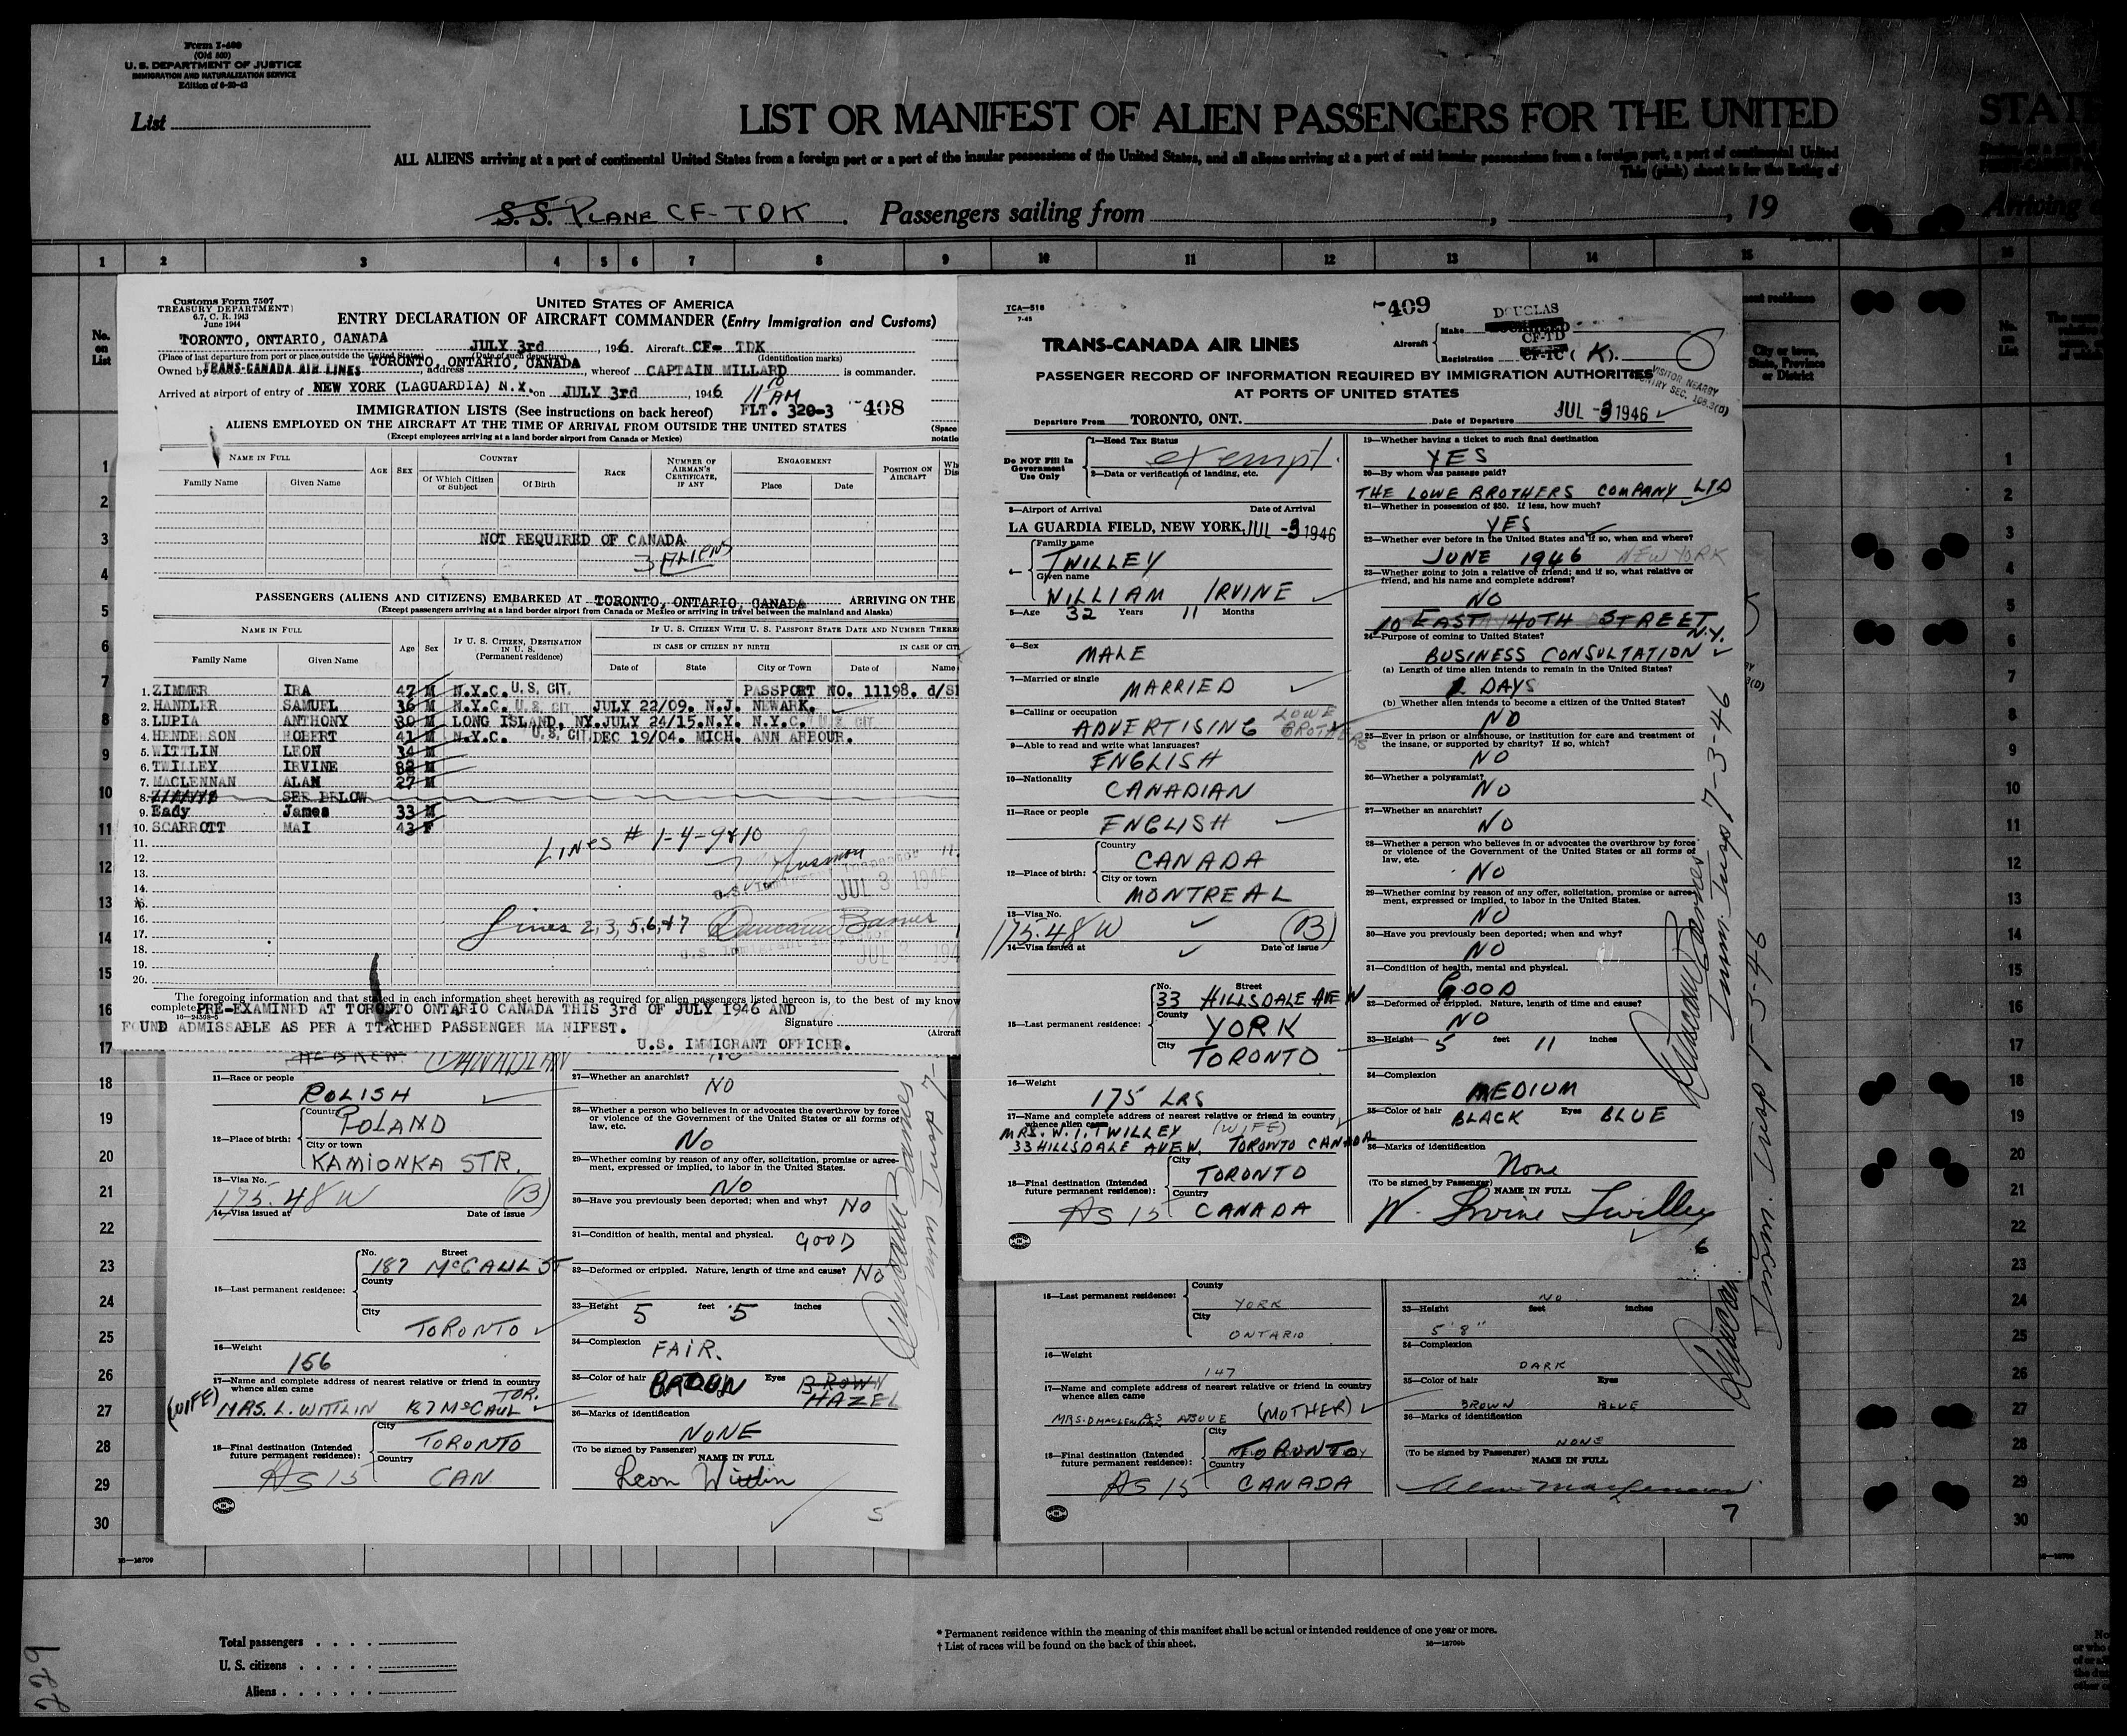 Form I-400
(Old 500)
U. S. DEPARTMENT OF JUSTICE
IMMIGRATION AND NATURALIZATION SERVICE
List
LIST OR MANIFEST OF ALIEN PASSENGERS FOR THE UNITED
STATE
ALL ALIENS arriving at a port of continental United States from a foreign port or a port of the insular possessions of the United States, and all aliens arriving at a port of said insular possessions from a foreign port, a port of continental United
This (pink) sheet is for the listing of
S.S. PLANE CF-TDK. Passengers sailing from , , 19
Arriving
1 2 3 4 5 6 7 8 9 10 11 12 13 14 15 16
No. on List
Customs Form 7507
TREASURY DEPARTMENT
6.7, C. R. 1943
June 1944
UNITED STATES OF AMERICA
ENTRY DECLARATION OF AIRCRAFT COMMANDER (Entry Immigration and Customs)
TORONTO, ONTARIO, CANADA JULY 3rd , 1946 Aircraft CF- TDK
(Place of last departure from port or place outside the United States) (Date of such departure) (Identification marks)
Owned by TRANS-CANADA AIR LINES address TORONTO, ONTARIO, CANADA , whereof CAPTAIN MILLARD is commander.
Arrived at airport of entry of NEW YORK (LAGUARDIA) N.Y. on JULY 3rd , 1946 11 10 AM
IMMIGRATION LISTS (See instructions on back hereof) FLT. 320-3 408
ALIENS EMPLOYED ON THE AIRCRAFT AT THE TIME OF ARRIVAL FROM OUTSIDE THE UNITED STATES
(Except employees arriving at a land border airport from Canada or Mexico)
NAME IN FULL AGE SEX COUNTRY RACE NUMBER OF AIRMAN'S CERTIFICATE, IF ANY ENGAGEMENT POSITION ON AIRCRAFT
Family Name Given Name Of Which Citizen or Subject Of Birth Place Date
NOT REQUIRED OF CANADA
3 ALIENS
PASSENGERS (ALIENS AND CITIZENS) EMBARKED AT TORONTO, ONTARIO, CANADA ARRIVING ON THE
(Except passengers arriving at a land border airport from Canada or Mexico or arriving in travel between the mainland and Alaska)
NAME IN FULL Age Sex IF U. S. CITIZEN, DESTINATION IN U. S. (Permanent residence) IF U. S. CITIZEN WITH U. S. PASSPORT STATE DATE AND NUMBER
IN CASE OF CITIZEN BY BIRTH
Family Name Given Name Date of State City or Town Date of Name
1. ZIMMER IRA 47 M N.Y.C. U.S. CIT. PASSPORT NO. 11198.
2. HANDLER SAMUEL 36 M N.Y.C. U.S. CIT. JULY 22/09. N.J. NEWARK.
3. LUPIA ANTHONY 30 M LONG ISLAND, NY. JULY 24/15. N.Y. N.Y.C. U.S. CIT
4. HENDERSON ROBERT 41 M N.Y.C. U.S. CIT DEC 19/04. MICH. ANN ARBOUR.
5. WITTLIN LEON 34 M
6. TWILLEY IRVINE 32 M
7. MACLENNAN ALAN 27 M
8. SEE BELOW
9. Eady James 33 M
10. SCARROTT MAI 43 F
11.
12.
13.
14.
15.
16.
17.
18.
19.
20.
LINES # 1-4-9+10
U.S. Immigrant Inspector
JUL 3 1946
Lines 2, 3, 5, 6, +7 Duncan Barnes
U.S. Immigrant Inspector
JUL 3 194
The foregoing information and that stated in each information sheet herewith as required for alien passengers listed hereon is, to the best of my know
complete PRE-EXAMINED AT TORONTO ONTARIO CANADA THIS 3rd OF JULY 1946 AND
FOUND ADMISSABLE AS PER A TTACHED PASSENGER MA NIFEST.
Signature
U.S. IMMIGRANT OFFICER.
HEBREW CANADIAN
NO
11—Race or people
POLISH
12—Place of birth:
Country POLAND
City or town
KAMIONKA STR.
13—Visa No.
175.48W (B)
14—Visa issued at Date of issue
15—Last permanent residence:
No. Street
187 McCAUL ST
County
City
TORONTO
16—Weight
156
17—Name and complete address of nearest relative or friend in country whence alien came
(WIFE) MRS. L. WITTLIN 187 McCAUL TOR.
18—Final destination (Intended future permanent residence):
City TORONTO
Country
As 15 CAN
27—Whether an anarchist?
NO
28—Whether a person who believes in or advocates the overthrow by force or violence of the Government of the United States or all forms of law, etc.
No
29—Whether coming by reason of any offer, solicitation, promise or agreement, expressed or implied, to labor in the United States.
No
30—Have you previously been deported; when and why? No
31—Condition of health, mental and physical. GOOD
32—Deformed or crippled. Nature, length of time and cause? No
33—Height 5 feet 5 inches
34—Complexion
FAIR.
35—Color of hair BROWN Eyes BROWN HAZEL
36—Marks of identification
NONE
(To be signed by Passenger) NAME IN FULL
Leon Wittlin
5
Duncan Barnes
Imm Insp 7-
TCA—518
7-45
409
TRANS-CANADA AIR LINES
Aircraft Make DOUGLAS
Registration CF-TD (K).
PASSENGER RECORD OF INFORMATION REQUIRED BY IMMIGRATION AUTHORITIES
AT PORTS OF UNITED STATES
VISITOR NEARBY
COUNTRY SEC. 108.3(D)
Departure From TORONTO, ONT. Date of Departure JUL -3 1946
Do NOT Fill In Government Use Only
1—Head Tax Status
exempt.
2—Data or verification of landing, etc.
3—Airport of Arrival Date of Arrival
LA GUARDIA FIELD, NEW YORK, JUL -3 1946
4— Family name
TWILLEY
Given name
WILLIAM IRVINE
5—Age 32 Years 11 Months
6—Sex
MALE
7—Married or single
MARRIED
8—Calling or occupation
ADVERTISING LOWE BROTHERS
9—Able to read and write what languages?
ENGLISH
10—Nationality
CANADIAN
11—Race or people
ENGLISH
12—Place of birth:
Country
CANADA
City or town
MONTREAL
13—Visa No.
175.48W (B)
14—Visa issued at Date of issue
15—Last permanent residence:
No. Street
33 HILLSDALE AVE W
County
YORK
City
TORONTO
16—Weight
175 LBS
17—Name and complete address of nearest relative or friend in country whence alien came
MRS. W. I. TWILLEY (WIFE)
33 HILLSDALE AVE W. TORONTO CANADA
18—Final destination (Intended future permanent residence):
City
TORONTO
Country
As 15 CANADA
19—Whether having a ticket to such final destination
YES
20—By whom was passage paid?
THE LOWE BROTHERS COMPANY LTD
21—Whether in possession of $50. If less, how much?
YES
22—Whether ever before in the United States and if so, when and where?
JUNE 1946 NEW YORK
23—Whether going to join a relative or friend; and if so, what relative or friend, and his name and complete address?
NO
10 EAST 40TH STREET N.Y.
24—Purpose of coming to United States?
BUSINESS CONSULTATION
(a) Length of time alien intends to remain in the United States?
2 DAYS
(b) Whether alien intends to become a citizen of the United States?
NO
25—Ever in prison or almshouse, or institution for care and treatment of the insane, or supported by charity? If so, which?
NO
26—Whether a polygamist?
NO
27—Whether an anarchist?
NO
28—Whether a person who believes in or advocates the overthrow by force or violence of the Government of the United States or all forms of law, etc.
NO
29—Whether coming by reason of any offer, solicitation, promise or agreement, expressed or implied, to labor in the United States.
NO
30—Have you previously been deported; when and why?
NO
31—Condition of health, mental and physical.
GOOD
32—Deformed or crippled. Nature, length of time and cause?
NO
33—Height 5 feet 11 inches
34—Complexion
MEDIUM
35—Color of hair BLACK Eyes BLUE
36—Marks of identification
None
(To be signed by Passenger) NAME IN FULL
W. Irvine Twilley
6
Duncan Barnes
Imm. Insp 7-3-46
15—Last permanent residence:
County
YORK
City
ONTARIO
16—Weight
147
17—Name and complete address of nearest relative or friend in country whence alien came
MRS. D MACLENNAN AS ABOVE (MOTHER)
18—Final destination (Intended future permanent residence):
City
TORONTO
Country
As 15 CANADA
NO
33—Height feet inches
5' 8"
34—Complexion
DARK
35—Color of hair Eyes
BROWN BLUE
36—Marks of identification
NONE
(To be signed by Passenger) NAME IN FULL
Alan MacLennan
7
Duncan
Imm. Insp 7-3-46
City or town, State, Province or District
Total passengers
U. S. citizens
Aliens
* Permanent residence within the meaning of this manifest shall be actual or intended residence of one year or more.
† List of races will be found on the back of this sheet.
16—18709b
16—18709
229